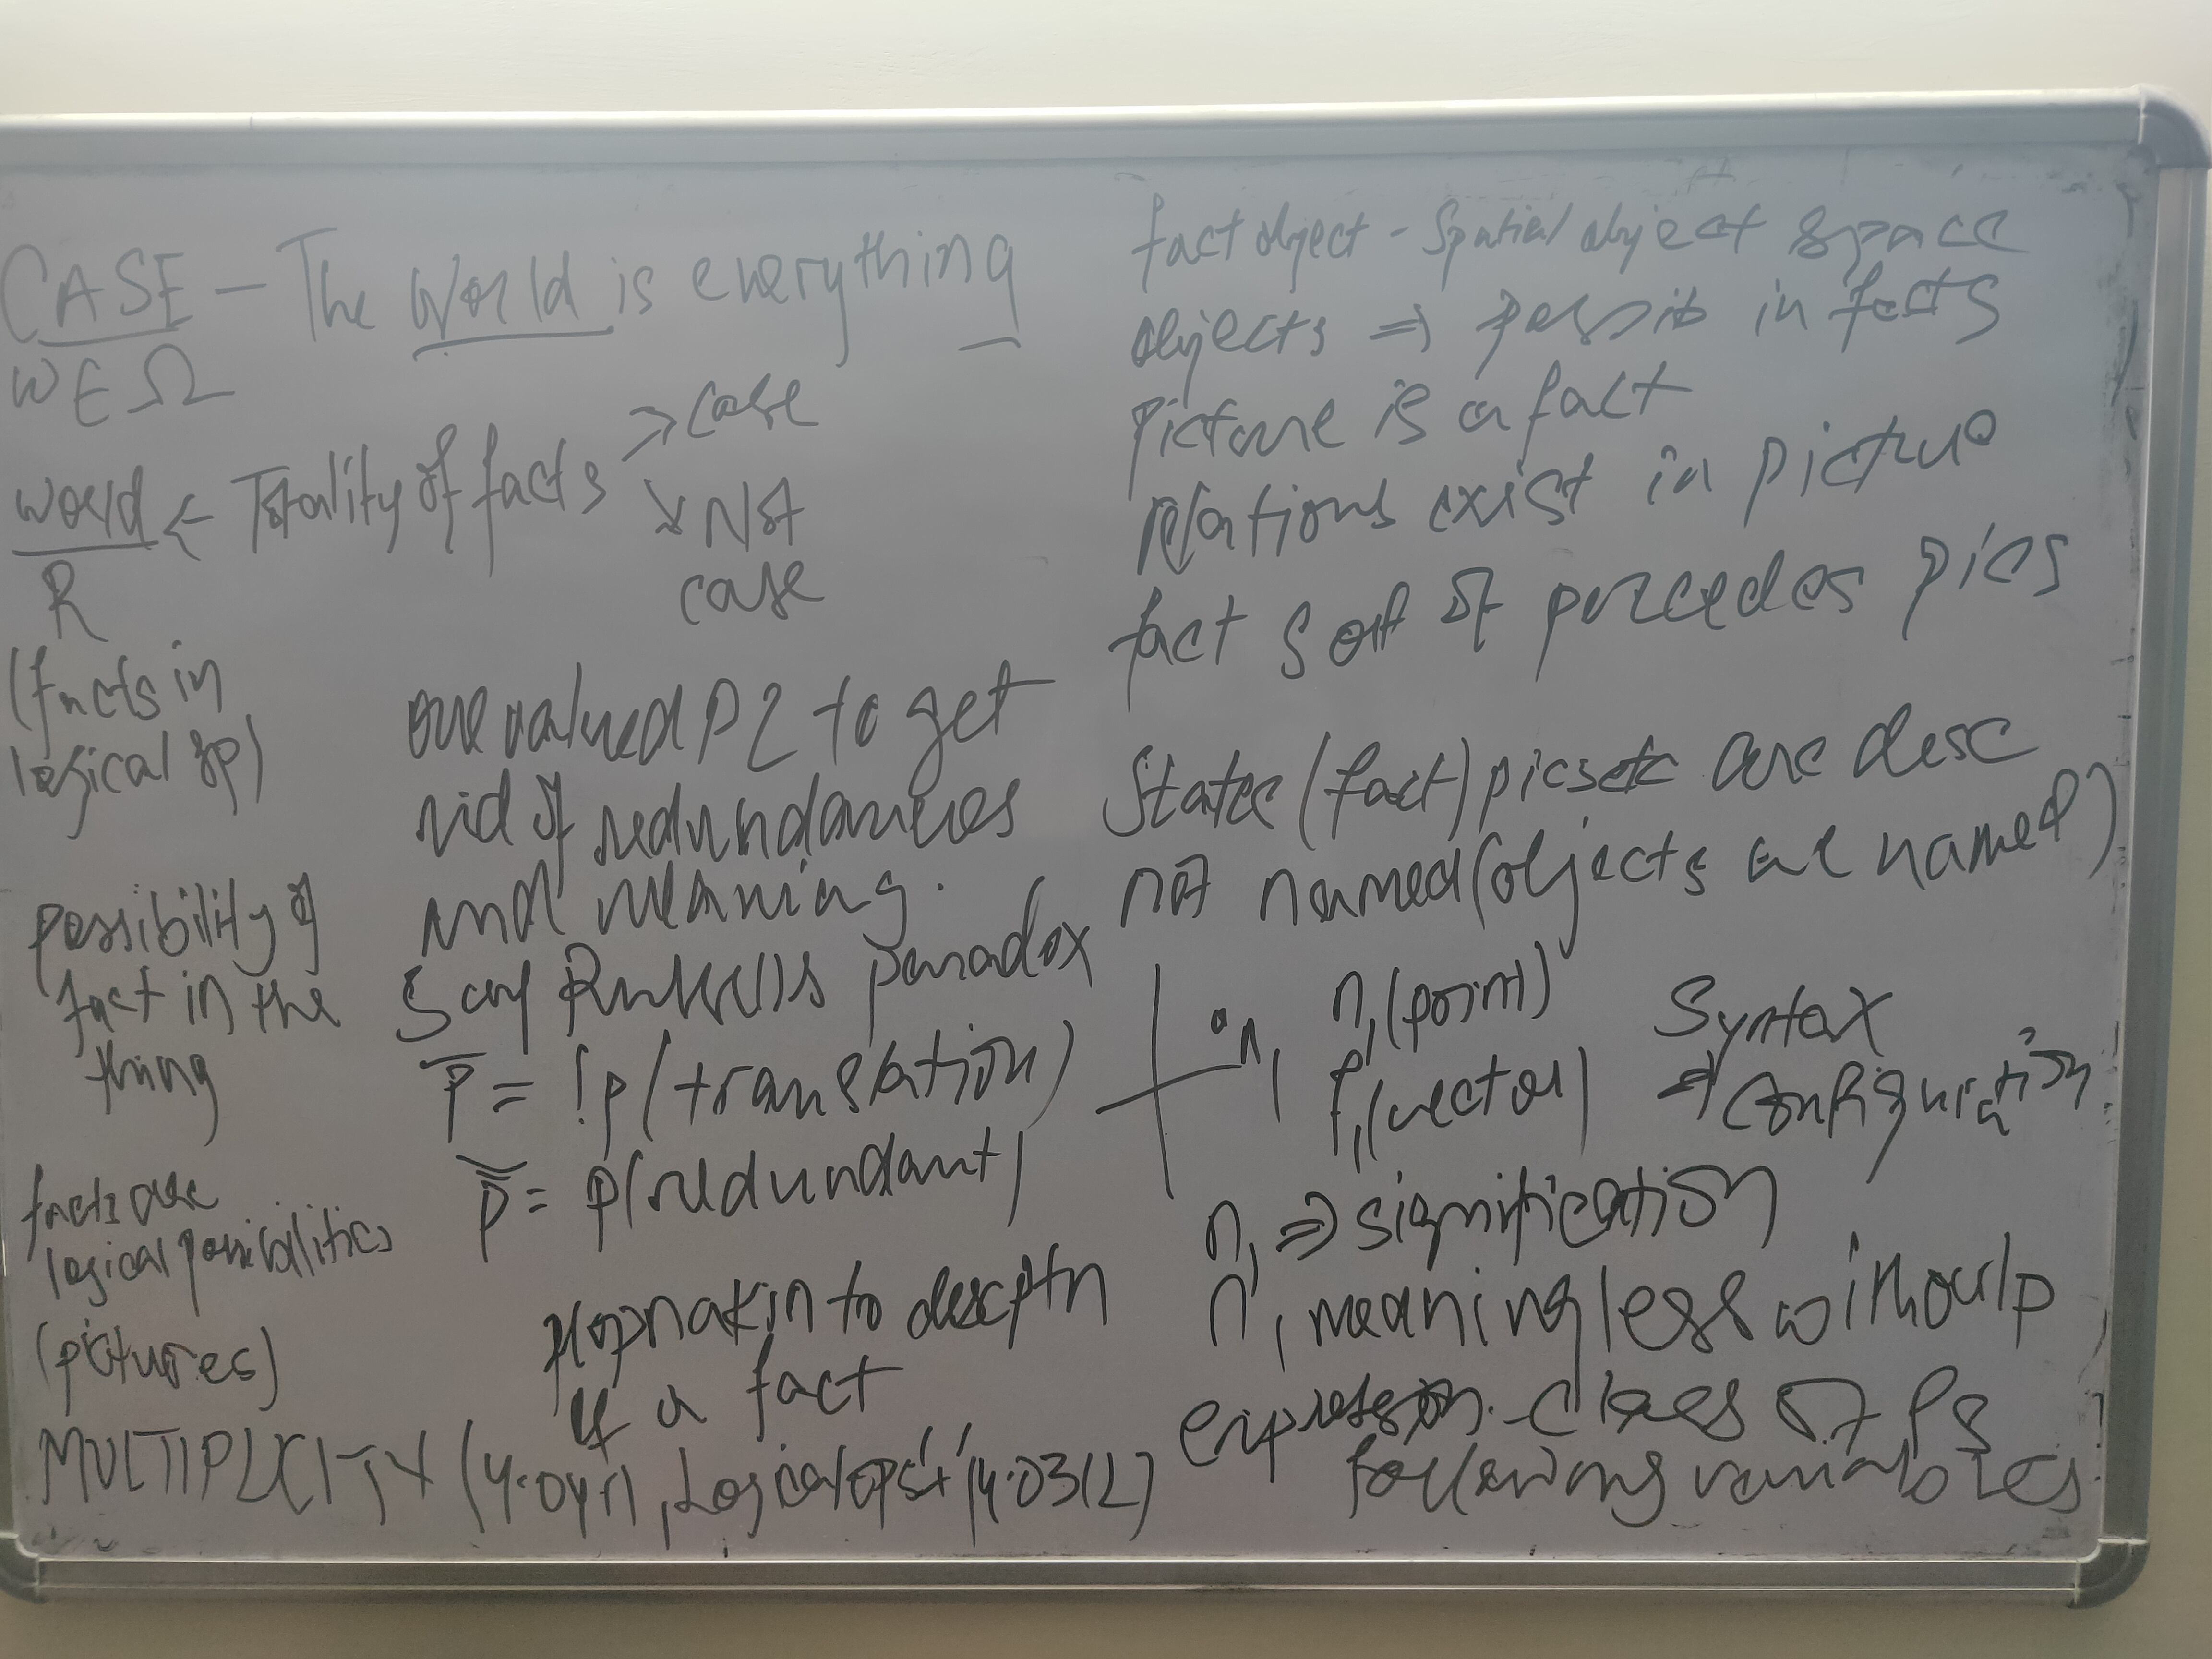 CASE - The World is everything
W E Ω
World ← Totality of facts → case
↘ Not
case
R
(facts in
logical sp)
possibility of
fact in the
thing
facts are
logical possibilities
(pictures)
one valued P2 to get
rid of redundancies
and meaning.
Say Russells paradox
p̅ = !p (translation)
p̿ = p (redundant)
propn akin to descptn
of a fact
MULTIPLICITY (4.041), Logical ops' (4.0312)
fact object - Spatial object space
objects ⇒ possib in facts
Picture is a fact
relations exist in picture
fact sort of precedes pics
States (fact) pics etc are desc
not named (objects are named)
n₁ n₁ (point) Syntax
P₁ (vector) ⇒ Configuration
n₁ ⇒ signification
n₁, meaningless without p
expression - class of Ps
following variables